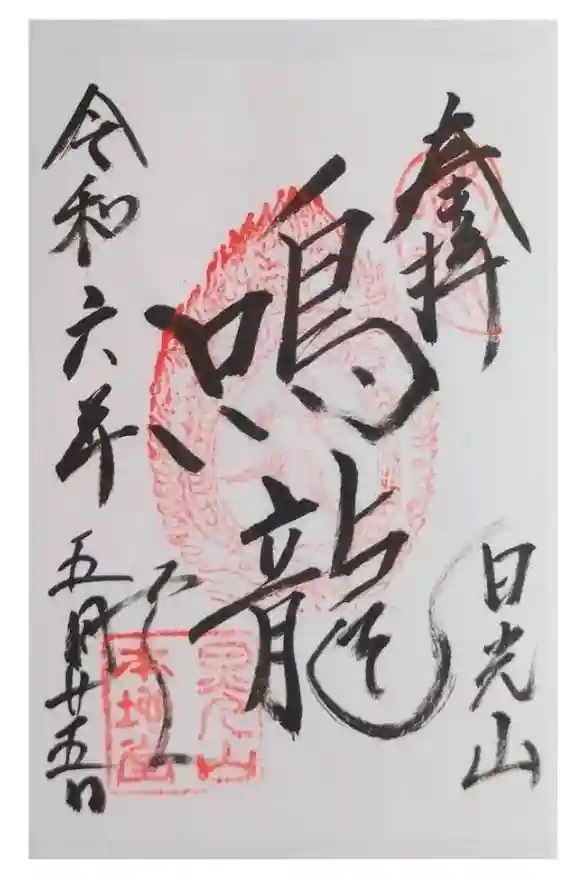 奉拝
日光山
鳴龍
令和六年五月廿五日
日光山
本地堂